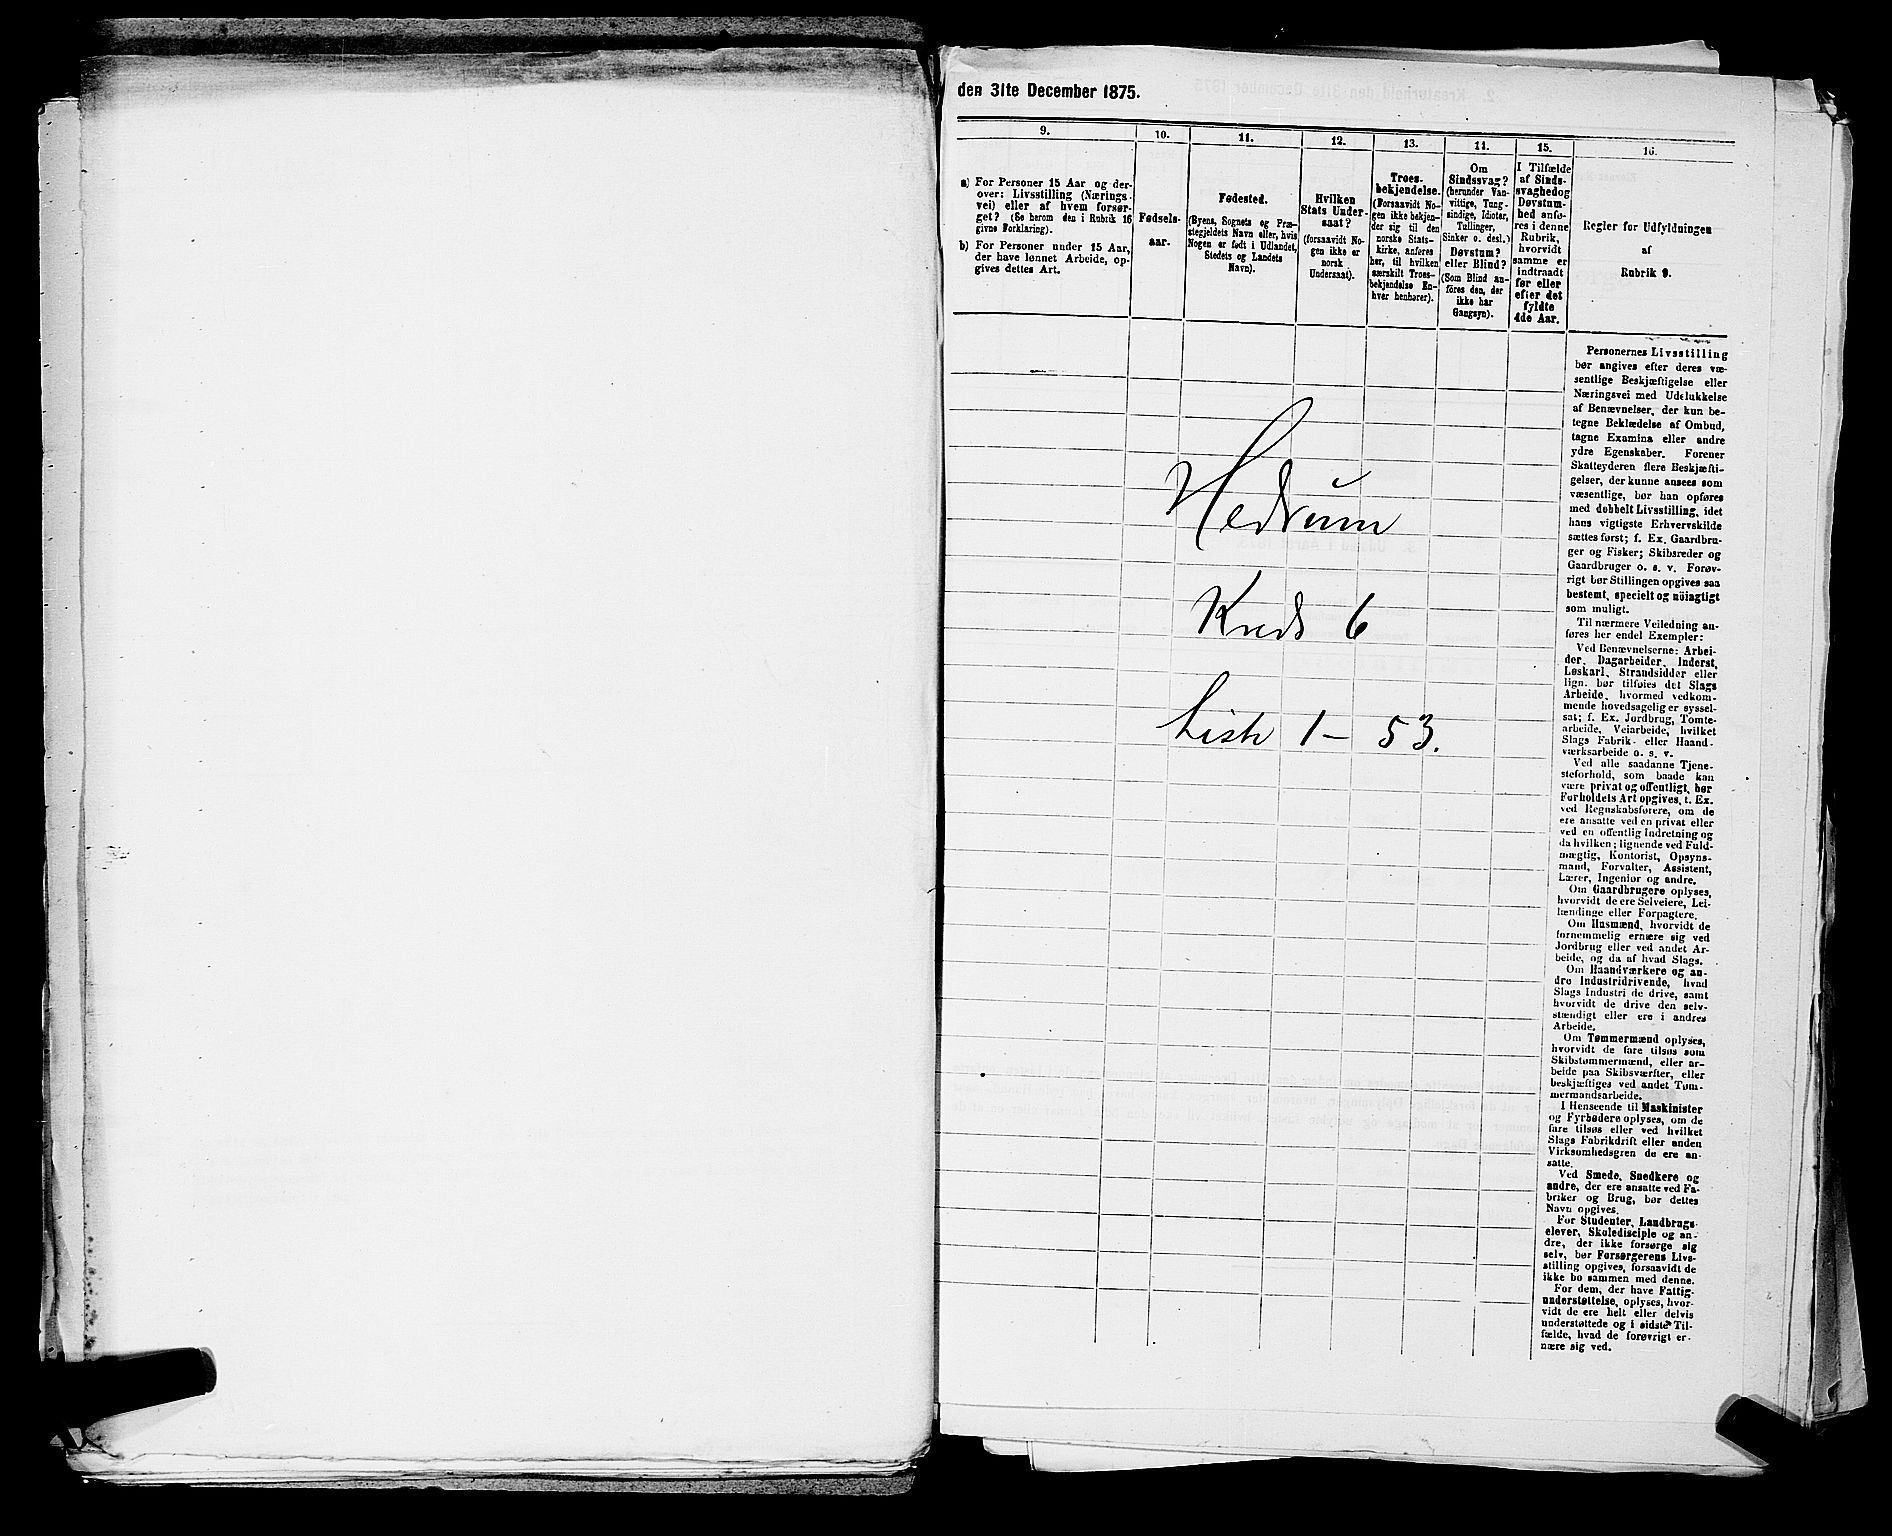 den 31te December 1875.
9.
a) For Personer 15 Aar og der-
over: Livsstilling (Nærings-
vei) eller af hvem forsør-
get? (Se herom den i Rubrik 16
givne Forklaring).
b) For Personer under 15 Aar,
der have lønnet Arbeide, op-
gives dettes Art.
10.
Fødsels-
aar.
11.
Fødested.
(Byens, Sognets og Præ-
stegjeldets Navn eller, hvis
Nogen er født i Udlandet,
Stedets og Landets
Navn).
12.
Hvilken
Stats Under-
saat?
(forsaavidt No-
gen ikke er
norsk
Undersaat).
13.
Troes-
bekjendelse.
(Forsaavidt No-
gen ikke bekjen-
der sig til den
norske Stats-
kirke, anføres
her, til hvilken
særskilt Troes-
bekjendelse En-
hver henhører).
14.
Om
Sindssvag?
(herunder Van-
vittige, Tung-
sindige, Idioter,
Tullinger,
Sinker o. desl.)
Døvstum?
eller Blind?
(Som Blind an-
føres den, der
ikke har
Gangsyn).
15.
I Tilfælde
af Sinds-
svaghed og
Døvstum-
hed anfø-
res i denne
Rubrik,
hvorvidt
samme er
indtraadt
før eller
efter det
fyldte
4de Aar.
16.
Regler for Udfyldningen
af
Rubrik 9.
Personernes Livsstilling
bør angives efter deres væ-
sentlige Beskjæftigelse eller
Næringsvei med Udelukkelse
af Benævnelser, der kun be-
tegne Beklædelse af Ombud,
tagne Examina eller andre
ydre Egenskaber. Forener
Skatteyderen flere Beskjæfti-
gelser, der kunne ansees som
væsentlige, bør han opføres
med dobbelt Livsstilling, idet
hans vigtigste Erhvervskilde
sættes først; f. Ex. Gaardbru-
ger og Fisker; Skibsreder og
Gaardbruger o. s. v. Forøv-
rigt bør Stillingen opgives saa
bestemt, specielt og nöiagtigt
som muligt.
Til nærmere Veiledning an-
føres her endel Exempler:
Ved Benævnelserne: Arbei-
der, Dagarbeider, Inderst,
Løskarl, Strandsidder eller
lign. bør tilføies det Slags
Arbeide, hvormed vedkom-
mende hovedsagelig er syssel-
sat; f. Ex. Jordbrug, Tomte-
arbeide, Veiarbeide, hvilket
Slags Fabrik- eller Haand-
værksarbeide o. s. v.
Ved alle saadanne Tjene-
steforhold, som baade kan
være privat og offentligt, bør
Forholdets Art opgives, t. Ex.
ved Regnskabsførere, om de
ere ansatte ved en privat eller
ved en offentlig Indretning og
da hvilken; lignende ved Fuld-
mægtig, Kontorist, Opsyns-
mand, Forvalter, Assistent,
Lærer, Ingeniør og andre.
Om Gaardbrugere oplyses,
hvorvidt de ere Selveiere, Lei-
lændinge eller Forpagtere.
Om Husmænd, hvorvidt de
fornemmelig ernære sig ved
Jordbrug eller ved andet Ar-
beide, og da af hvad Slags.
Om Haandværkere og an-
dre Industridrivende, hvad
Slags Industri de drive, samt
hvorvidt de drive den selv-
stændigt eller ere i andres
Arbeide.
Om Tømmermænd oplyses,
hvorvidt de fare tilsøs som
Skibstømmermænd, eller ar-
beide paa Skibsværfter, eller
beskjæftiges ved andet Tøm-
mermandsarbeide.
I Henseende til Maskinister
og Fyrbødere oplyses, om de
fare tilsøs eller ved hvilket
Slags Fabrikdrift eller anden
Virksomhedsgren de ere an-
satte.
Ved Smede, Snedkere og
andre, der ere ansatte ved Fa-
briker og Brug, bør dettes
Navn opgives.
For Studenter, Landbrugs-
elever, Skoledisciple og an-
dre, der ikke forsørge sig
selv, bør Forsørgerens Livs-
stilling opgives, forsaavidt de
ikke bo sammen med denne.
For dem, der have Fattig-
understøttelse, oplyses, hvor-
vidt de ere helt eller delvis
understøttede og i sidste Til-
fælde, hvad de forøvrigt er-
nære sig ved.
Hedrum
Kreds 6
Liste 1 – 53.